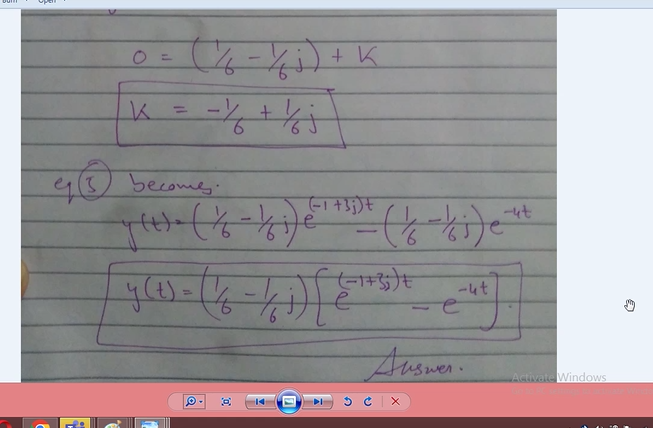 0 = (1/6 - 1/6 j) + K
K = -1/6 + 1/6 j
eq ③ becomes.
y(t) = (1/6 - 1/6 j) e^(-1+3j)t - (1/6 - 1/6 j) e^-4t
y(t) = (1/6 - 1/6 j) [e^(-1+3j)t - e^-4t].
Answer.
Activate Windows